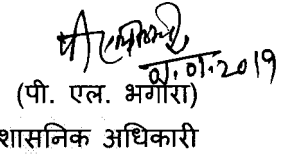 01.01.2019
(पी. एल. भगोरा)
शासनिक अधिकारी